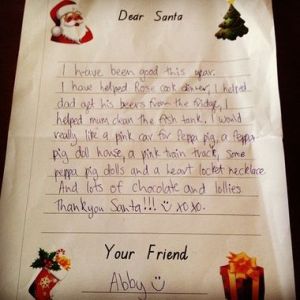 Dear Santa
I have been good this year.
I have helped Rose cook dinner, I helped
dad get his beers from the fridge, I
helped mum clean the fish tank, I would
really like a pink car for Peppa pig, a Peppa
pig doll house, a pink train track, some
peppa pig dolls and a heart locket necklace
And lots of chocolate and lollies
Thankyou Santa!!! xoxo.
Your Friend
Abby